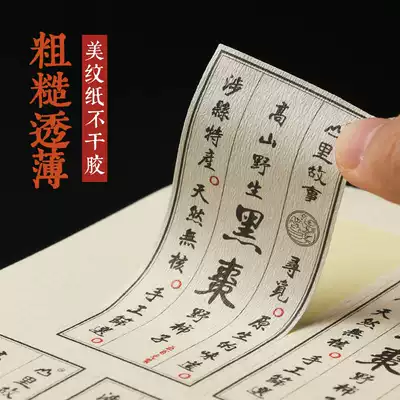 粗糙透薄
美纹纸不干胶
山里故事
尋覓
原生的味道
高山野生
黑棗
野柿子
涉縣特產
天然無核
手工篩選
山里故事
天然無核
手工